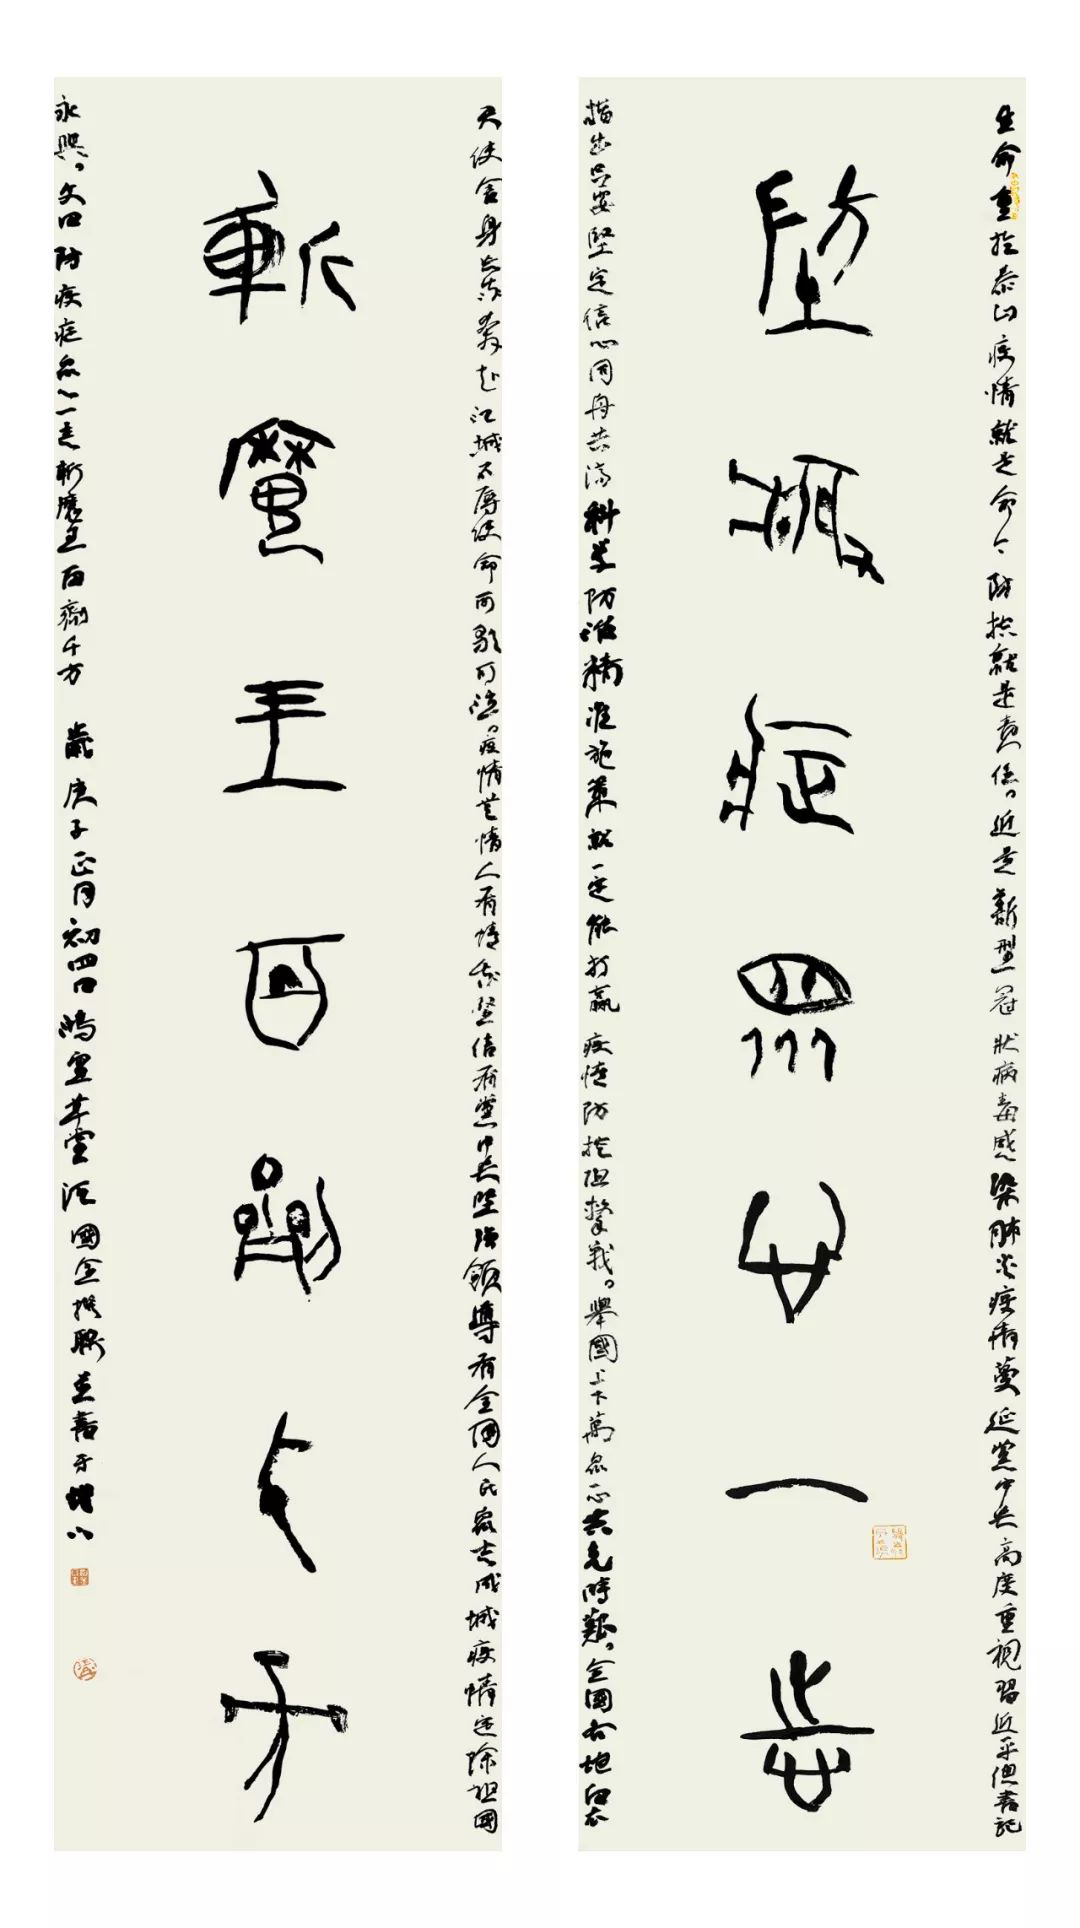 生命重於泰山疫情就是命令防控就是責任近是新型冠狀病毒感染肺炎疫情蔓延黨中央高度重視習近平總書記
防疫症眾心一志
指出只要堅定信心同舟共濟科學防治精准施策就一定能打贏疫情防控阻擊戰舉國上下萬眾一心共克時艱全國各地白衣
天使舍身忘我奔赴江城不辱使命可歌可泣疫情無情人有情我堅信有黨中央堅強領導有全國人民眾志成城疫情定除祖國
斬魔王百劑千方
永興文曰防疫症眾心一志斬魔王百劑千方 歲庚子正月初四日草堂汪國金撰聯並書于